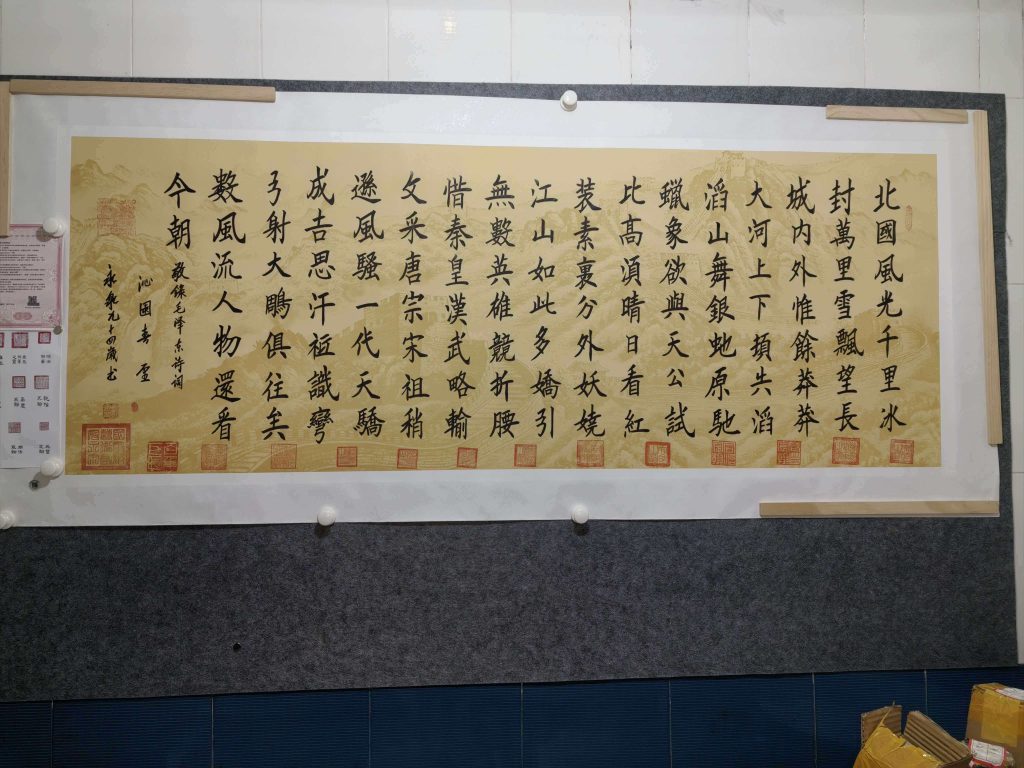 北國風光千里冰
封萬里雪飄望長
城内外惟餘莽莽
大河上下頓失滔
滔山舞銀虵原馳
蠟象欲與天公試
比高須晴日看紅
装素裹分外妖嬈
江山如此多嬌引
無數英雄競折腰
惜秦皇漢武略輸
文采唐宗宋祖稍
遜風騷一代天驕
成吉思汗祗識彎
弓射大鵰俱往矣
數風流人物還看
今朝
敬錄毛泽东诗词
沁園春雪
九十四歲书